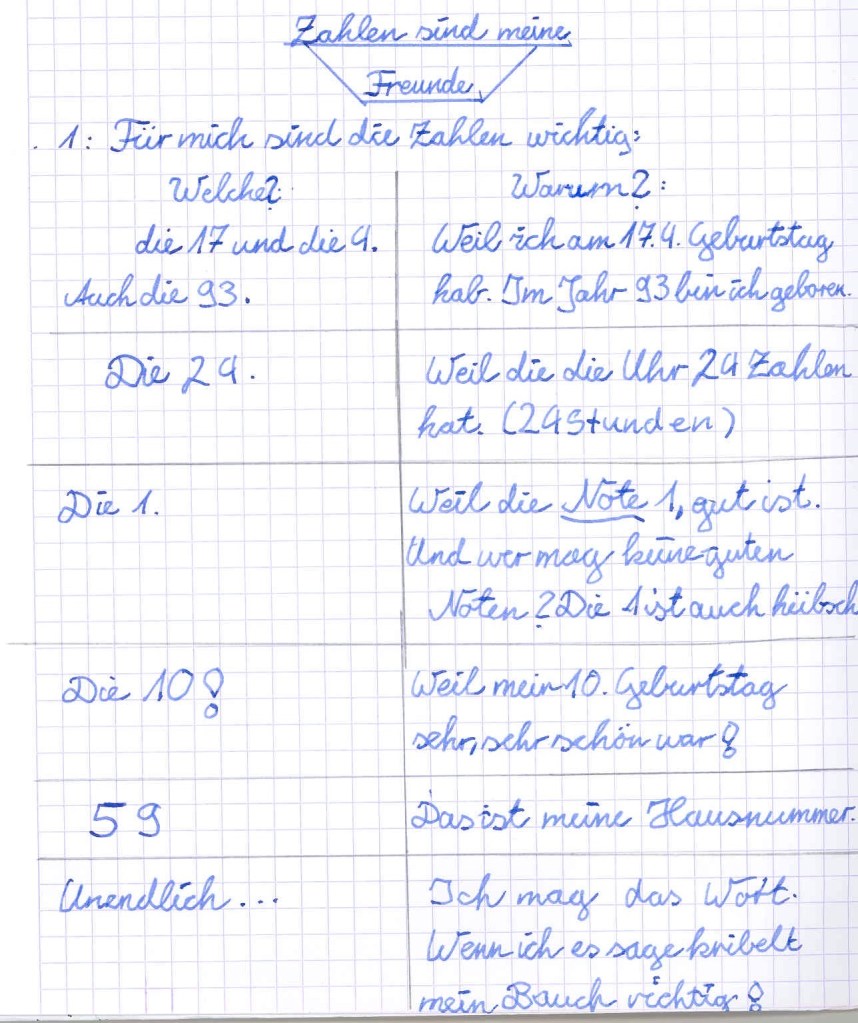 Zahlen sind meine
Freunde
. 1: Für mich sind die Zahlen wichtig:
Welche?
Warum?:
die 17 und die 4.
Auch die 93.
Weil ich am 17.4. Geburtstag
hab. Im Jahr 93 bin ich geboren.
Die 24.
Weil die die Uhr 24 Zahlen
hat. (24 Stunden)
Die 1.
Weil die Note 1, gut ist.
Und wer mag keine guten
Noten? Die 1 ist auch hübsch
Die 10!
Weil mein 10. Geburtstag
sehr, sehr schön war!
59
Das ist meine Hausnummer.
Unendlich...
Ich mag das Wort.
Wenn ich es sage kribelt
mein Bauch richtig!